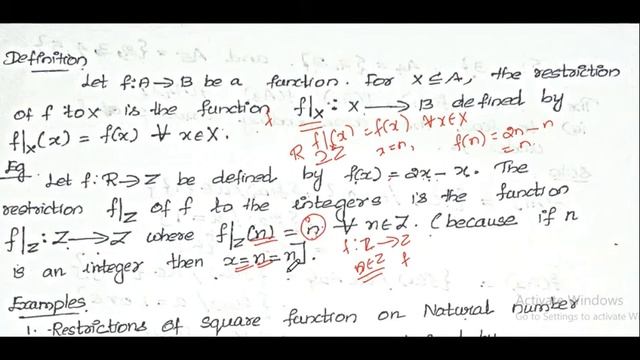 Definition
Let f:A→B be a function. For X⊆A, the restriction
of f to X is the function f|x : X → B defined by
f|x(x) = f(x) ∀ x∈X.
f|(x) = f(x) ∀x∈X
R ⊇ Z x=n, f(n) = 2n-n
= n
Eg
Let f:R→Z be defined by f(x) = 2x - x. The
restriction f|z of f to the integers is the function
f|z : Z → Z where f|z(n) = n ∀ n∈Z. (because if n
is an integer then x=n=n].
f:Z→Z
n∈Z f
Examples
1. Restrictions of square function on Natural number
Activate Windows
Go to Settings to activate W